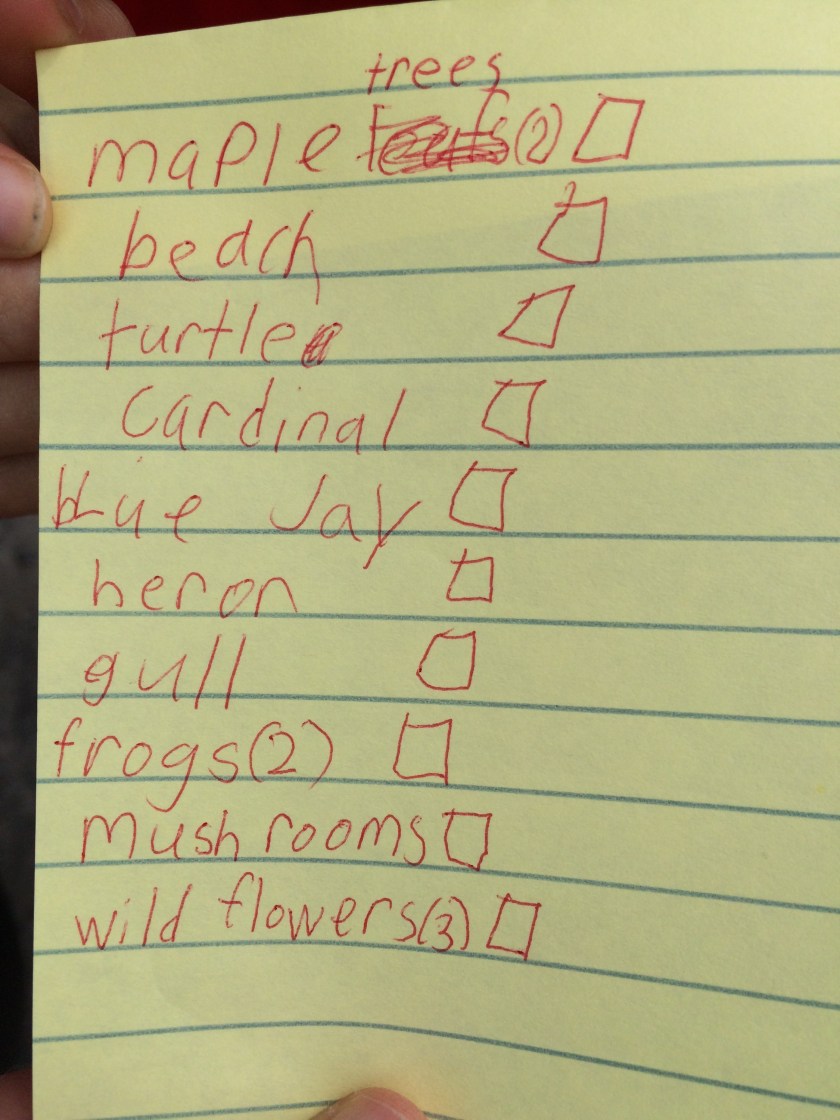 trees
maple (2)
beach
turtle
cardinal
blue Jay
heron
gull
frogs(2)
mush rooms
wild flowers(3)